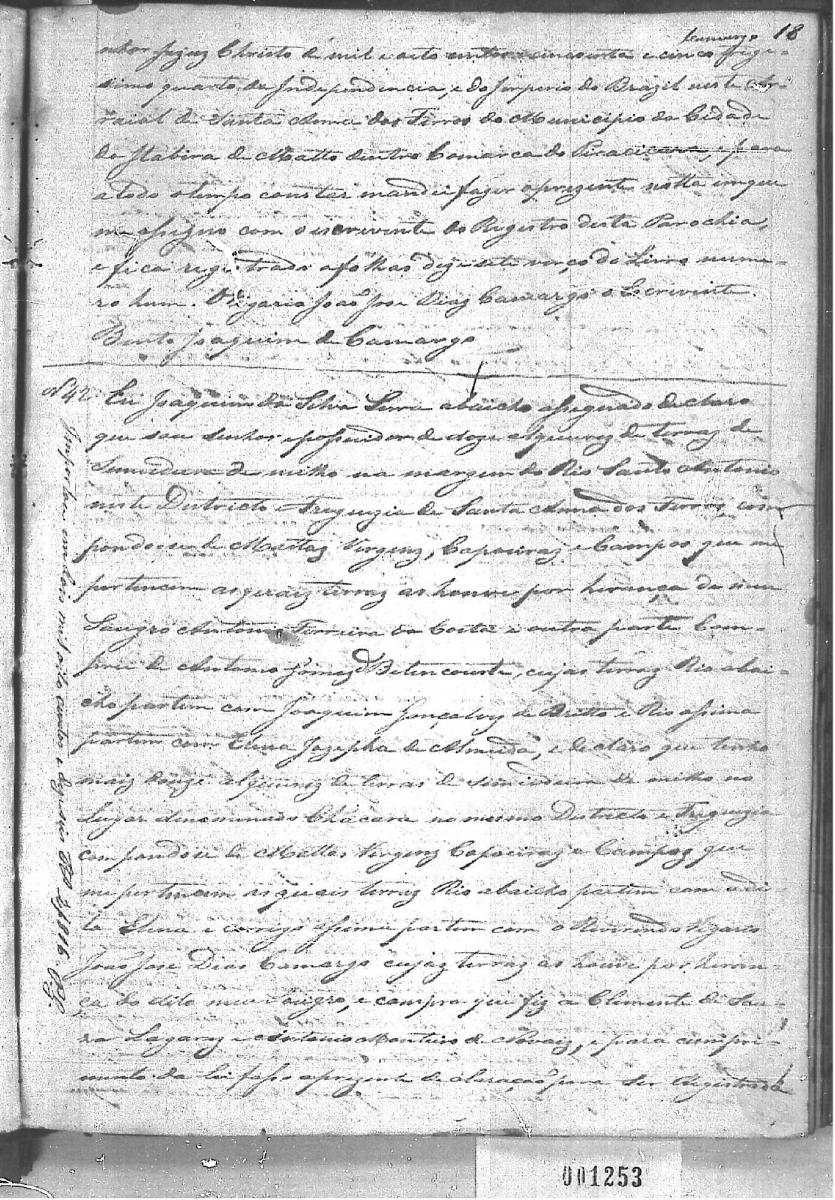 Camargo 18
nhor Jezus Christo de mil e oito centos e cincoenta e cinco trige-
simo quarto da Independencia, e do Imperio do Brazil neste Ar-
raial de Santa Anna dos Ferros do Municipio da Cidade
da Itabira de Matto dentro Comarca do Piracicava, e para
a todo o tempo constar mandei fazer a prezente notta em que
me assigno com o escrevente do Registro desta Parochia,
e fica registrado a folhas dezesete verço do Livro nume-
ro hum. O Vigario João Jose Dias Camargo o Escrevente
Bento Joaquim de Camargo
Nº 42 Eu Joaquim da Silva Serra abaicho assignado declaro
que sou senhor e possuidor de doze alqueires de terras de
semeadura de milho na margem do Rio Santo Antonio
neste Districto e Freguezia de Santa Anna dos Ferros, com
pondosse de Mattas Virgens, Capoeiras e Campos que me
pertencem as quaiz terras as houve por herança de meu
Saugro Antonio Ferreira da Costa e outra parte Com-
prei de Antonio Gomes Betencourte, cujas terras Rio abai-
cho partem com Joaquim Gonçalves de Britto e Rio assima
partem com Elena Jozepha de Almeida, e declaro que tenho
maiz douze alqueires de terras de semeadura de milho no
Lugar denominado Chácara no mesmo Districto e Freguezia
compondose de Mattas Virgens Capoeiras e Campos que
me pertencem as quais terras Rio abaicho partem com a di-
ta Elena e corrigo assima partem com o Reverendo Vigario
João Jose Dias Camargo cujas terras as houve por heran-
ça do dito meu Saugro, e compra que fiz a Clemente de Sou-
za Lagares e Antonio Monteiro de Novaiz, e para cumpri-
mento da Lei fasso a prezente declaração para ser Registrada
Importou em dois mil oito centos e dezeseis Rs 2$816
001253